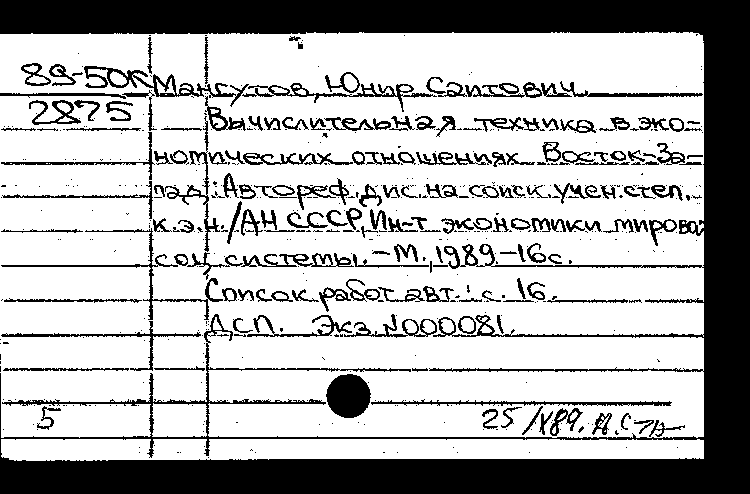 89-50К Мангутов, Юнир Саитович.
2875 Вычислительная техника в эко-
номических отношениях Восток-За-
пад: Автореф. дис. на соиск. учен. степ.
к.э.н. /АН СССР, Ин-т экономики мировой
соц. системы. - М., 1989.-16с.
Список работ авт.: с. 16.
ДСП. Экз. N000081.
5 25/X89.